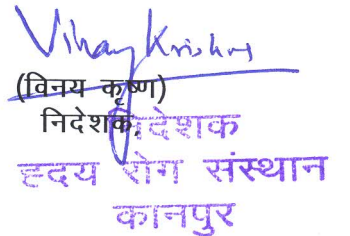 Vinay Krishna
(विनय कृष्ण)
निदेशक,
निदेशक
हृदय रोग संस्थान
कानपुर